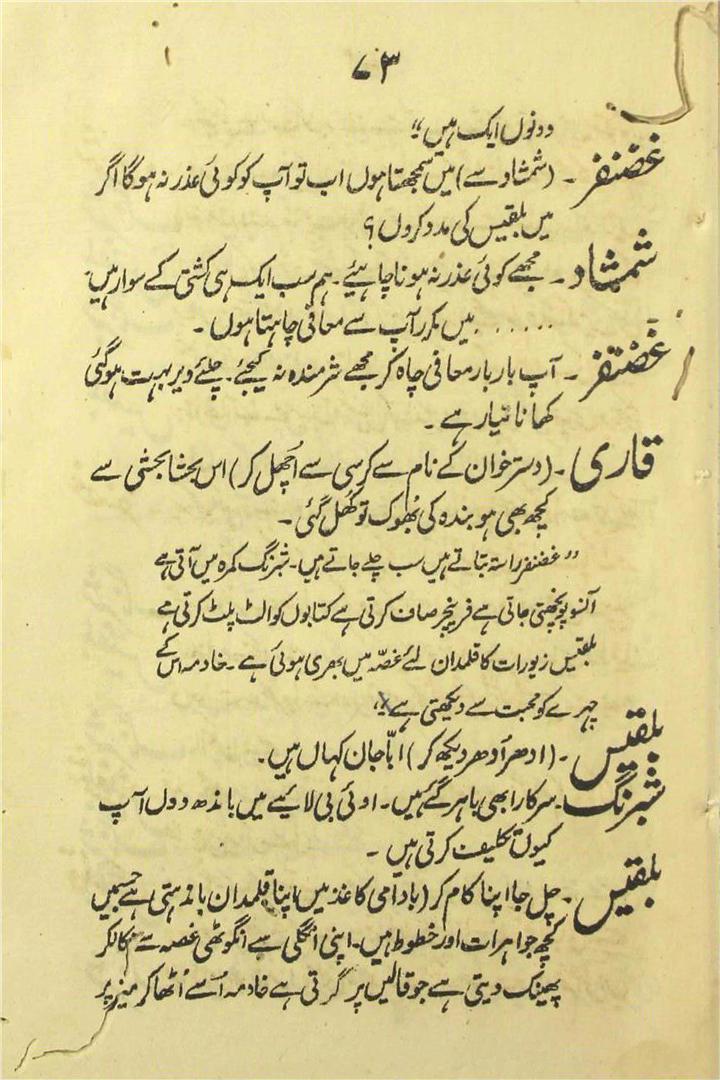 ۷۳
دونوں ایک ہیں"
غضنفر - (شمشاد سے) میں سمجھتا ہوں اب تو آپ کو کوئی عذر نہ ہوگا اگر
میں بلقیس کی مدد کروں؟
شمشاد - مجھے کوئی عذر نہ ہونا چاہیئے۔ ہم سب ایک ہی کشتی کے سوار ہیں
....... میں مکرر آپ سے معافی چاہتا ہوں۔
غضنفر - آپ بار بار معافی چاہ کر مجھے شرمندہ نہ کیجئے۔ چلئے دیر بہت ہوگئی
کھانا تیار ہے۔
قاری - (دسترخوان کے نام سے کرسی سے اُچھل کر) اس بحشا بحشی سے
کچھ بھی ہو بندہ کی بُھوک تو کُھل گئی۔
"غضنفر راستہ بتاتے ہیں سب چلے جاتے ہیں۔ شبرنگ کمرہ میں آتی ہے
آنسو پونچھتی جاتی ہے فرنیچر صاف کرتی ہے کتابوں کو الٹ پلٹ کرتی ہے
بلقیس زیورات کا قلمدان لئے غصّہ میں بھری ہوئی ہے۔ خادمہ اس کے
چہرے کو محبت سے دیکھتی ہے"
بلقیس - (ادھر اُدھر دیکھ کر) ابّا جان کہاں ہیں۔
شبرنگ - سرکار ابھی باہر گئے ہیں۔ اوئی بی لایئے میں باندھ دوں آپ
کیوں تکلیف کرتی ہیں۔
بلقیس - چل جا اپنا کام کر (بادامی کاغذ میں اپنا قلمدان باندہتی ہے جسمیں
کچھ جواہرات اور خطوط ہیں۔ اپنی انگلی سے انگوٹھی غصہ سے نکالکر
پھینک دیتی ہے جو قالیں پر گرتی ہے خادمہ اُسے اُٹھا کر میز پر